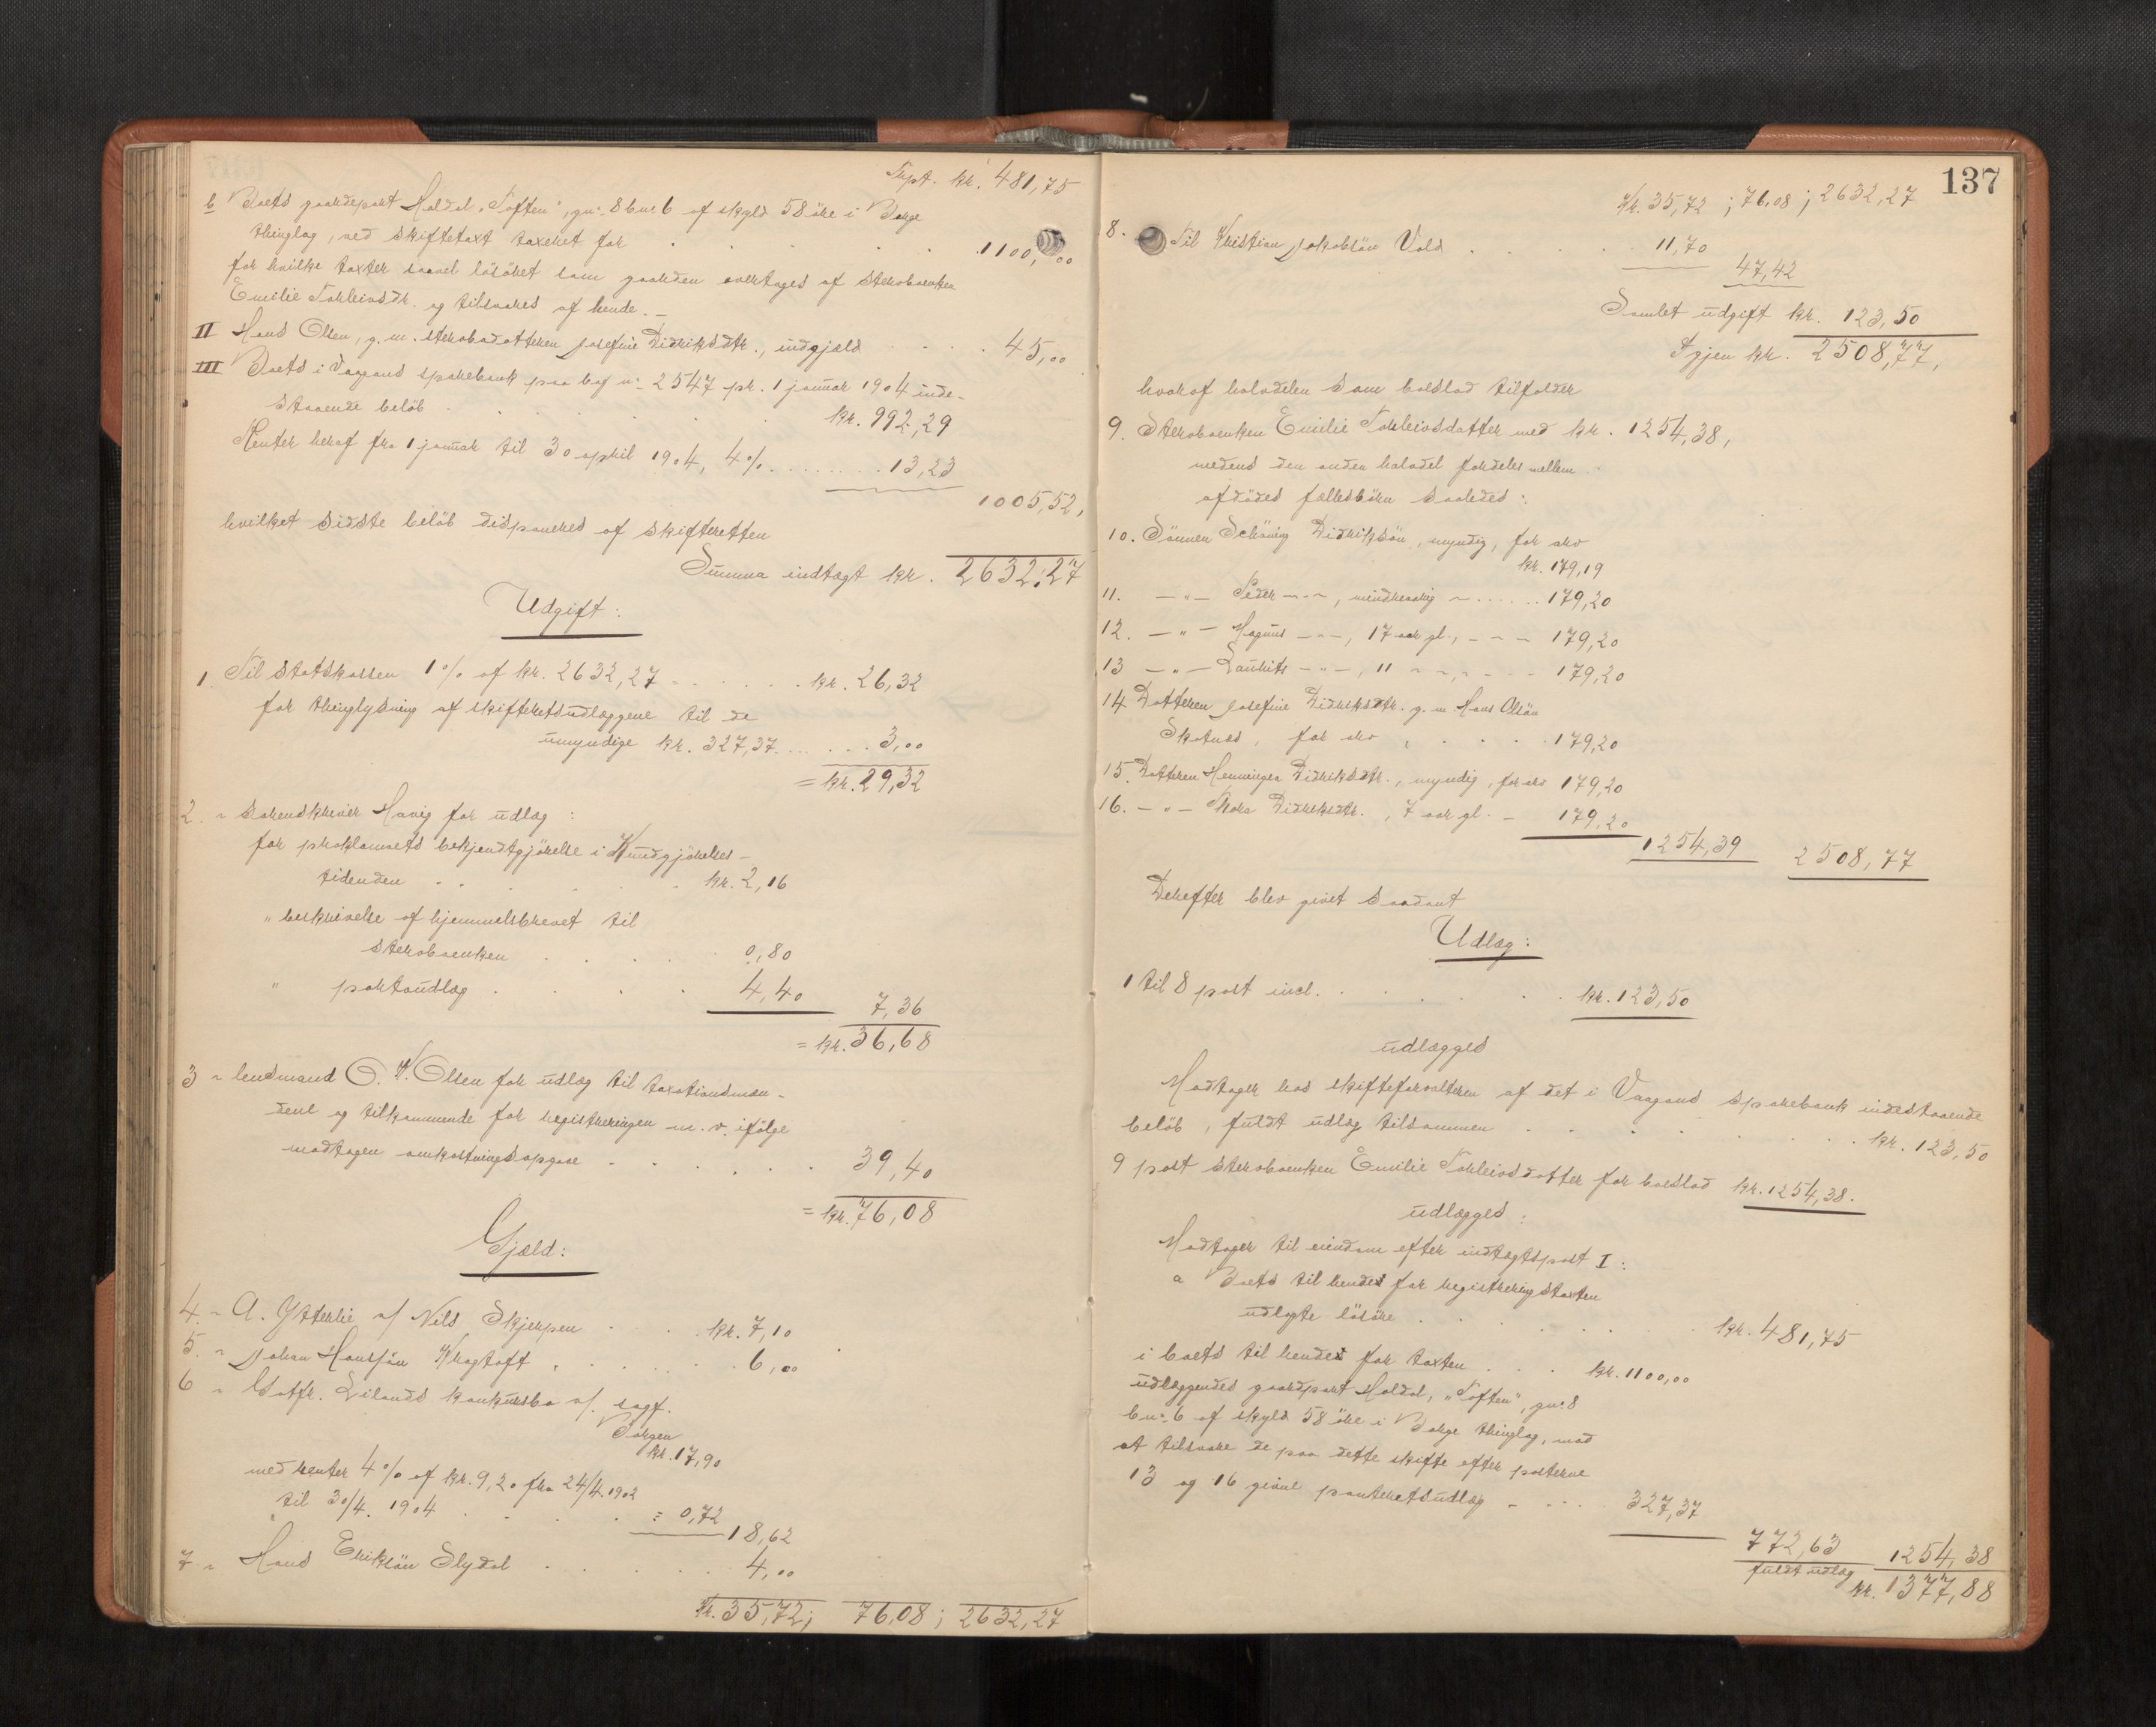 Trspt. kr. 481,75
b Boets gaardspart Haldal „Toften", gn. 8 bn. 6 af skyld 58 øre i Borge
thinglag, ved skiftetaxt taxeret for . . . . 1100,00
for hvilke taxter saavel løsøret som gaarden overtages af sterboenken
Emilie Torleivsdtr. og tilsvares af hende. –
II Hans Olsen, g. m. sterbodatteren Josefine Didriksdtr., indgjæld . . . . 45,00
III Boets i Vaagans sparebank paa bog n. 2547 pr. 1 januar 1904 inde-
staaende beløb . . . . kr. 992,29
Renter heraf fra 1 januar til 30 april 1904, 4% . . . . 13,23
1005,52,
hvilket sidste beløb disponeres af skifteretten
Summa indtægt kr. 2632,27
Udgift:
1. Til statskassen 1% af kr. 2632,27 . . . . kr. 26,32
for thinglysning af skifteretsudlæggene til de
umyndige kr. 327,37 . . . . 3,00
= kr. 29,32
2. " sorenskriver Havig for udlæg :
for proklamaets bekjendtgjørelse i Kundgjørelses-
tidenden . . . . kr. 2,16
" beskrivelse af hjemmelsbrevet til
sterboenken . . . . 0,80
" portoudlæg . . . . 4,40
7,36
= kr. 36,68
3 " lensmand O. K. Olsen for udlæg til taxationsmæn-
dene og tilkommende for registreringen m. v. ifølge
modtagen omkostningsopgave . . . . 39,40
= kr. 76,08
Gjæld:
4. " A. Ytterlie v/ Nils Skjerpen . . . . kr. 7,10
5. " Johan Hanssøn Kragtoft . . . . 6,00
6 " Gotfr. Eilands konkursbo v/. sagf.
Borgen
kr. 17,90
med renter 4% af kr. 9,20 fra 24/4. 1902
til 30/4. 1904 . . . . = 0,72
18,62
7 " Hans Eriksøn Slydal . . . . 4,00
Kr. 35,72; 76,08; 2632,27
137
Kr. 35,72 ; 76,08 ; 2632,27
8. Til Kristian Jakobsøn Vold . . . . 11,70
47,42
Samlet udgift kr. 123,50
Igjen kr. 2508,77,
hvoraf halvdelen som boeslod tilfalder
9. Sterboenken Emilie Torleivsdatter med kr. 1254,38,
medens den anden halvdel fordeles mellem
afdødes fællesbørn saaledes :
10. Sønnen Schøning Didriksøn, myndig, for arv
kr. 179,19
11. — " — Peder — " —, mindreaarig – . . . . 179,20
12. — " — Magnus — " —, 17 aar gl., – – – 179,20
13 — " — Laurits — " —, 11 – – – – 179,20
14 Datteren Josefine Didriksdtr. g. m. Hans Olsøn
Skotnes, for arv . . . . 179,20
15. Datteren Henningea Didriksdtr., myndig, for arv 179,20
16. — " — Thora Didriksdtr., 7 aar gl. – 179,20
1254,39 2508,77
Derefter blev givet saadant
Udlæg:
1 til 8 post incl. . . . . kr. 123,50
udlægges
Modtager hos skifteforvalteren af det i Vaagans sparebank indestaaende
beløb, fuldt udlæg tilsammen . . . . kr. 123,50
9 post sterboenken Emilie Torleivsdatter for boeslod kr. 1254,38.
udlægges :
Modtager til eiendom efter indtægtspost I :
a Boets til hendes for registreringstaxten
udlagte løsøre . . . . kr. 481,75
i boets til hendes for taxten . . . kr. 1100,00
udlæggendes gaardpart Haldal, „Toften", gn. 8
bn. 6 af skyld 58 øre i Borge thinglag, mod
at tilsvare de paa dette skifte efter posterne
13 og 16 givne panteretsudlæg . . . . 327,37
772,63 1254,38
fuldt udlæg kr. 1377,88